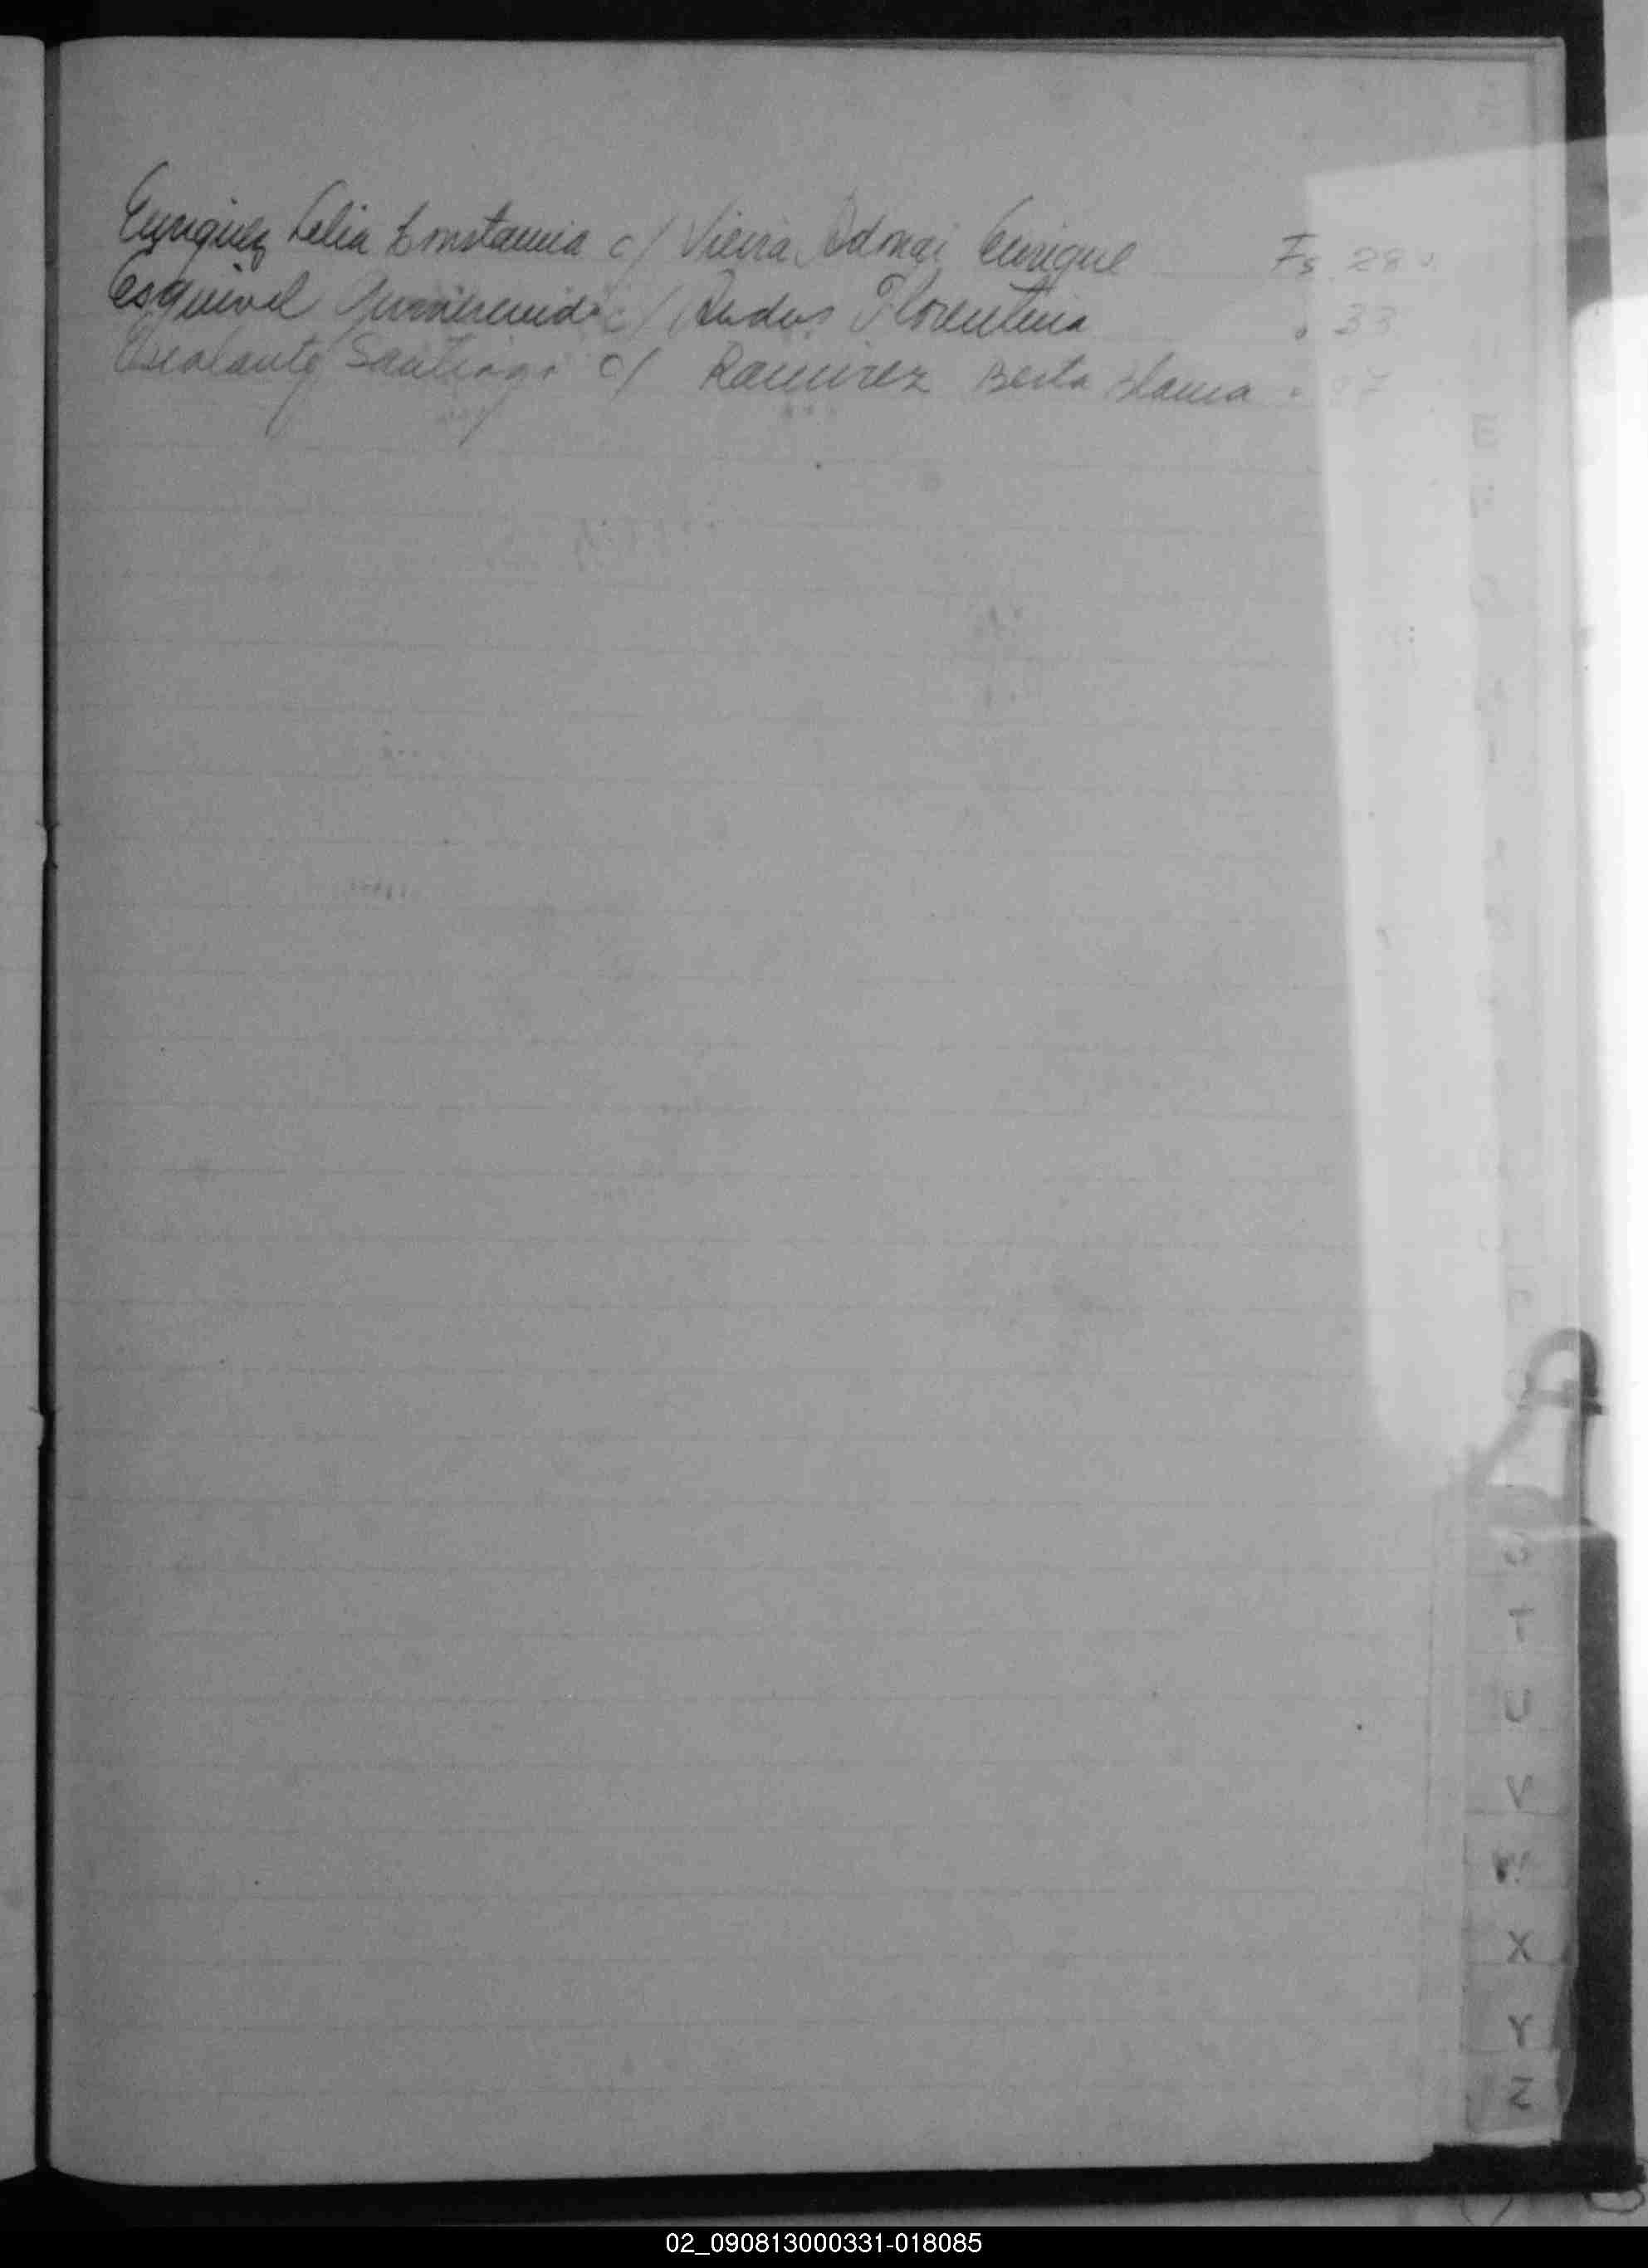 Enriquez Celia Constancia c/ Vieira Adonai Enrique Fs 28
Esquivel Gumersindo c/ Florentina " 33
Escalante Santiago c/ Ramirez Berta Blanca "
T
U
V
W
X
Y
Z
02_090813000331-018085